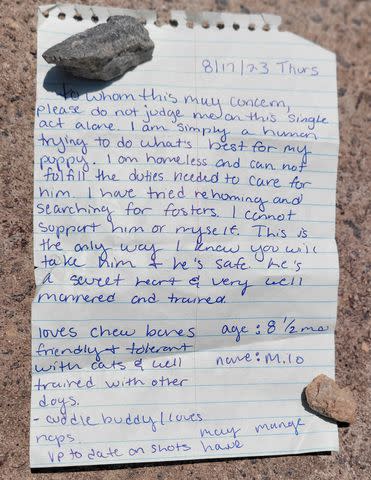 8/17/23 Thurs
To whom this may concern,
please do not judge me on this single
act alone. I am simply a human
trying to do what's best for my
puppy. I am homeless and can not
fulfill the duties needed to care for
him. I have tried rehoming and
searching for fosters. I cannot
support him or myself. This is
the only way I knew you will
take him & he's safe. he's
a sweet heart & very well
mannered and trained.
loves chew bones age: 8 1/2 mo
friendly & tolerant
with cats & well name: M.lo
trained with other
dogs.
- cuddle buddy/loves
naps. may mange
up to date on shots have